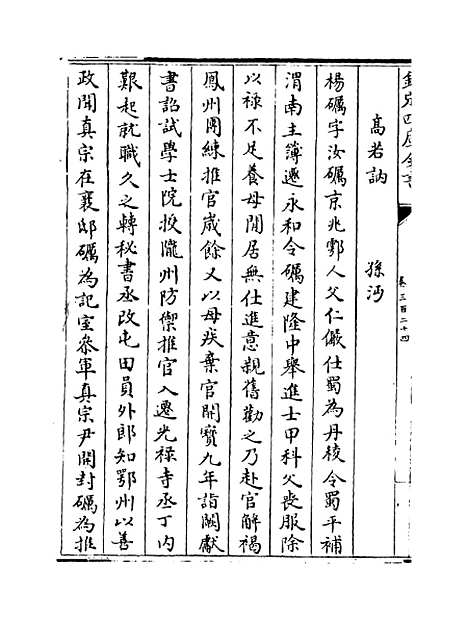 欽定四庫全書
卷三百二十四
高若訥　孫沔
楊礪字汝礪京兆鄠人父仁儼仕蜀為丹稜令蜀平補
渭南主簿遷永和令礪建隆中舉進士甲科父喪服除
以祿不足養母閒居無仕進意親舊勸之乃赴官解褐
鳳州團練推官歲餘又以母疾棄官開寶九年詣闕獻
書詔試學士院授隴州防禦推官入遷光祿寺丞丁内
艱起就職久之轉秘書丞改屯田員外郎知鄂州以善
政聞真宗在襄邸礪為記室參軍真宗尹開封礪為推